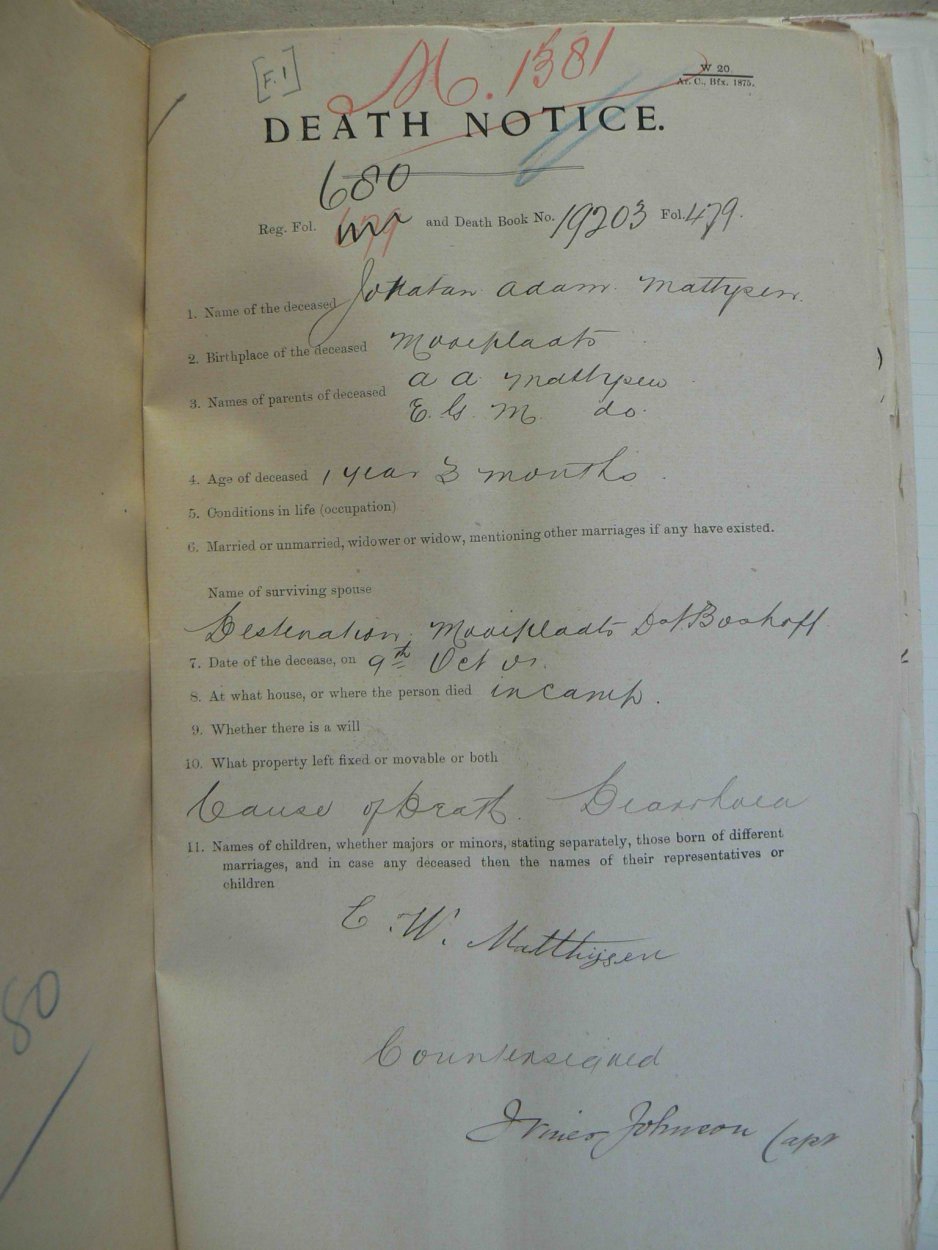 [F.1] M. 1381
W 20.
Ar. C., Bfx. 1875.
DEATH NOTICE.
680
Reg. Fol. 679 and Death Book No. 19203 Fol. 479.
1. Name of the deceased Johatan Adam Mattysen.
2. Birthplace of the deceased Mooiplaats
3. Names of parents of deceased A A Mattysen
E. G. M. do.
4. Age of deceased 1 year 3 months.
5. Conditions in life (occupation)
6. Married or unmarried, widower or widow, mentioning other marriages if any have existed.
Name of surviving spouse
Destination, Mooiplaats Dst Boshoff.
7. Date of the decease, on 9th Oct 01.
8. At what house, or where the person died in camp.
9. Whether there is a will
10. What property left fixed or movable or both
Cause of Death. Diarrhoea
11. Names of children, whether majors or minors, stating separately, those born of different
marriages, and in case any deceased then the names of their representatives or
children
E. W. Matthysen
Countersigned
Johnson Capt
80